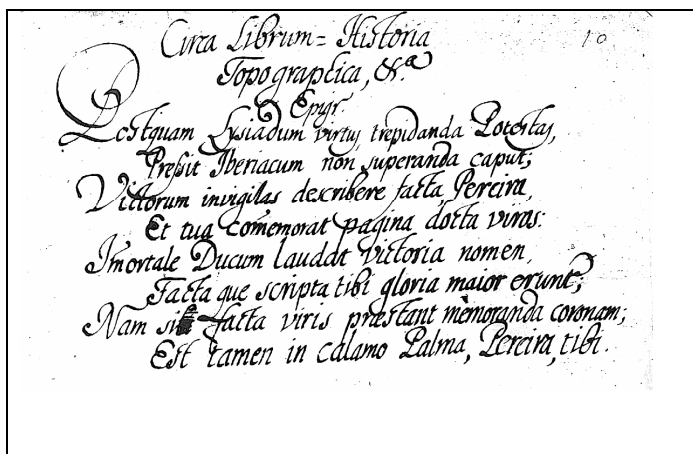 Circa Librum = Historia
10
Topographica, &.a
Epigr.
Postquam Lysiadum virtus, trepidanda Potestas,
Pressit Iberiacum non superanda caput;
Victorum invigilas describere facta, Pereira,
Et tua comemorat pagina docta viros:
Imortale Ducum laudat victoria nomen,
Facta que scripta tibi gloria maior erunt;
Nam si facta viris præstant memoranda coronam;
Est tamen in calamo Palma, Pereira, tibi.